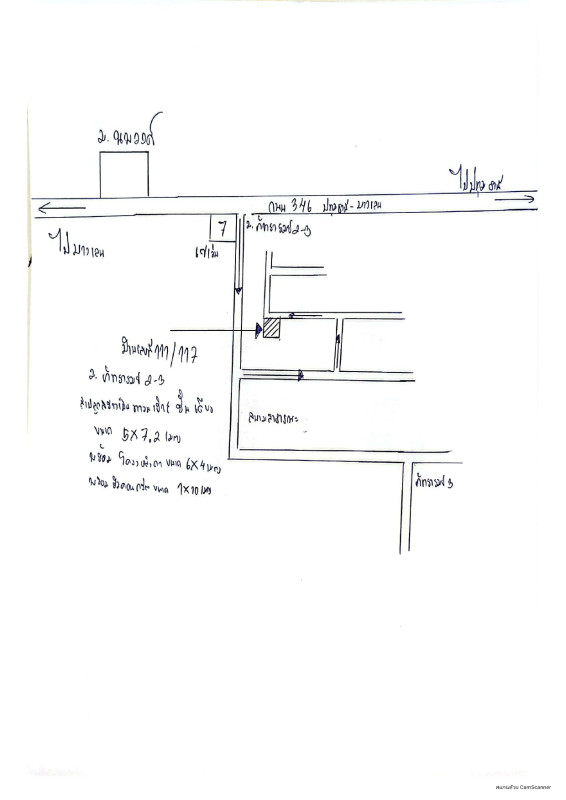 ม. นพวงศ์
ไปปทุมธานี
ถนน 346 ปทุมธานี - บางเลน
ไปบางเลน
7
เซเว่น
ม. ภัทรารมย์ 2-3
บ้านเลขที่ 111/117
ม. ภัทรารมย์ 2-3
ชั้นเดียว
ขนาด 5X7.2 เมตร
พร้อม โครงหลังคา ขนาด 6X4 เมตร
พร้อม ขนาด 1X10 เมตร
สนามสาธารณะ
ภัทรารมย์ 3
สแกนด้วย CamScanner